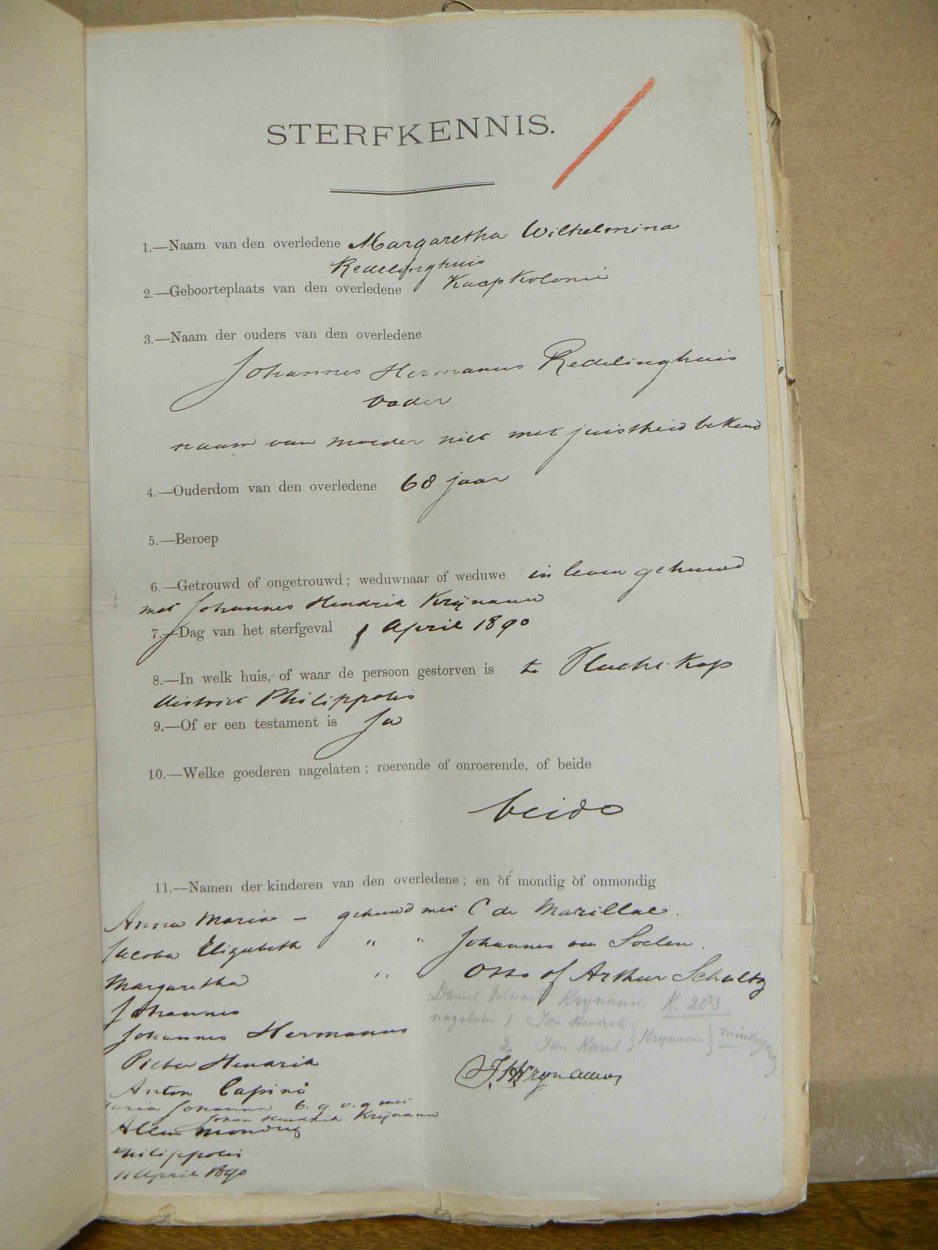 STERFKENNIS.
1.—Naam van den overledene Margaretha Wilhelmina
Redelinghuis
2.—Geboorteplaats van den overledene Kaap Kolonie
3.—Naam der ouders van den overledene
Johannes Hermanus Redelinghuis
vader
naam van moeder niet met juistheid bekend
4.—Ouderdom van den overledene 68 jaar
5.—Beroep
6.—Getrouwd of ongetrouwd; weduwnaar of weduwe in leven gehuwd
met Johannes Hendrik Krijnauw
7.—Dag van het sterfgeval 1 April 1890
8.—In welk huis, of waar de persoon gestorven is te Kop
district Philippolis
9.—Of er een testament is Ja
10.—Welke goederen nagelaten; roerende of onroerende, of beide
beide
11.—Namen der kinderen van den overledene; en òf mondig òf onmondig
Anna Maria — gehuwd met C de Marillac.
Jacoba Elizabeth " " Johannes van Soelen.
Margaretha " " Otto of Arthur Schultz
Johannes
Daniel Krynauw K. 203
Johannes Hermanus
nagelaten 1 Jan Hendrik
2 Jan Karel } Krynauw }
Pieter Hendrik
JHKrynauw
Anton Capini
Maria Johanna b. g. v. g met
Johan Hendrik Krijnauw
Allen mondig
Philippolis
11 April 1890